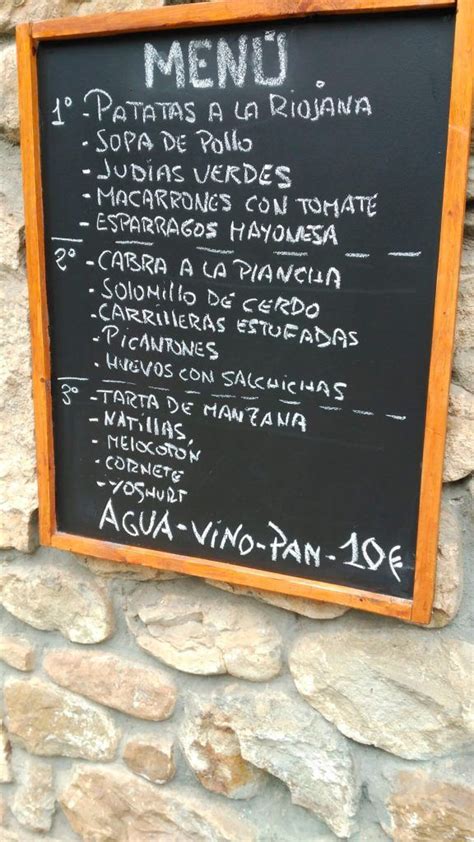 MENÚ
1º - PATATAS A LA RIOJANA
- SOPA DE POLLO
- JUDÍAS VERDES
- MACARRONES CON TOMATE
- ESPARRAGOS MAYONESA
2º - CABRA A LA PLANCHA
- SOLOMILLO DE CERDO
- CARRILLERAS ESTUFADAS
- PICANTONES
- HUEVOS CON SALCHICHAS
3º - TARTA DE MANZANA
- NATILLAS,
- MELOCOTON
- CORNETE
- YOSHURT
AGUA - VINO - PAN - 10€